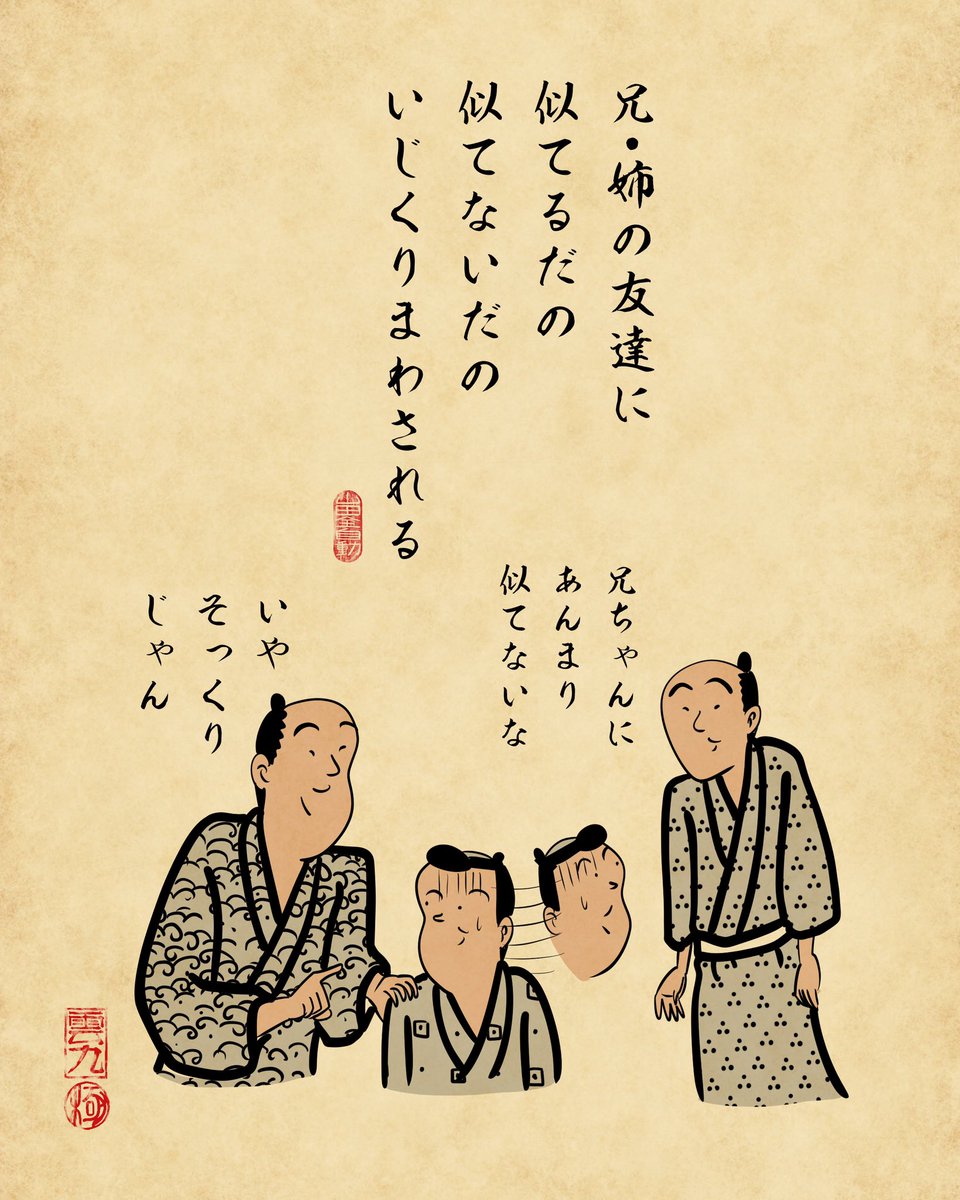 兄・姉の友達に
似てるだの
似てないだの
いじくりまわされる
兄ちゃんに
あんまり
似てないな
いや
そっくり
じゃん